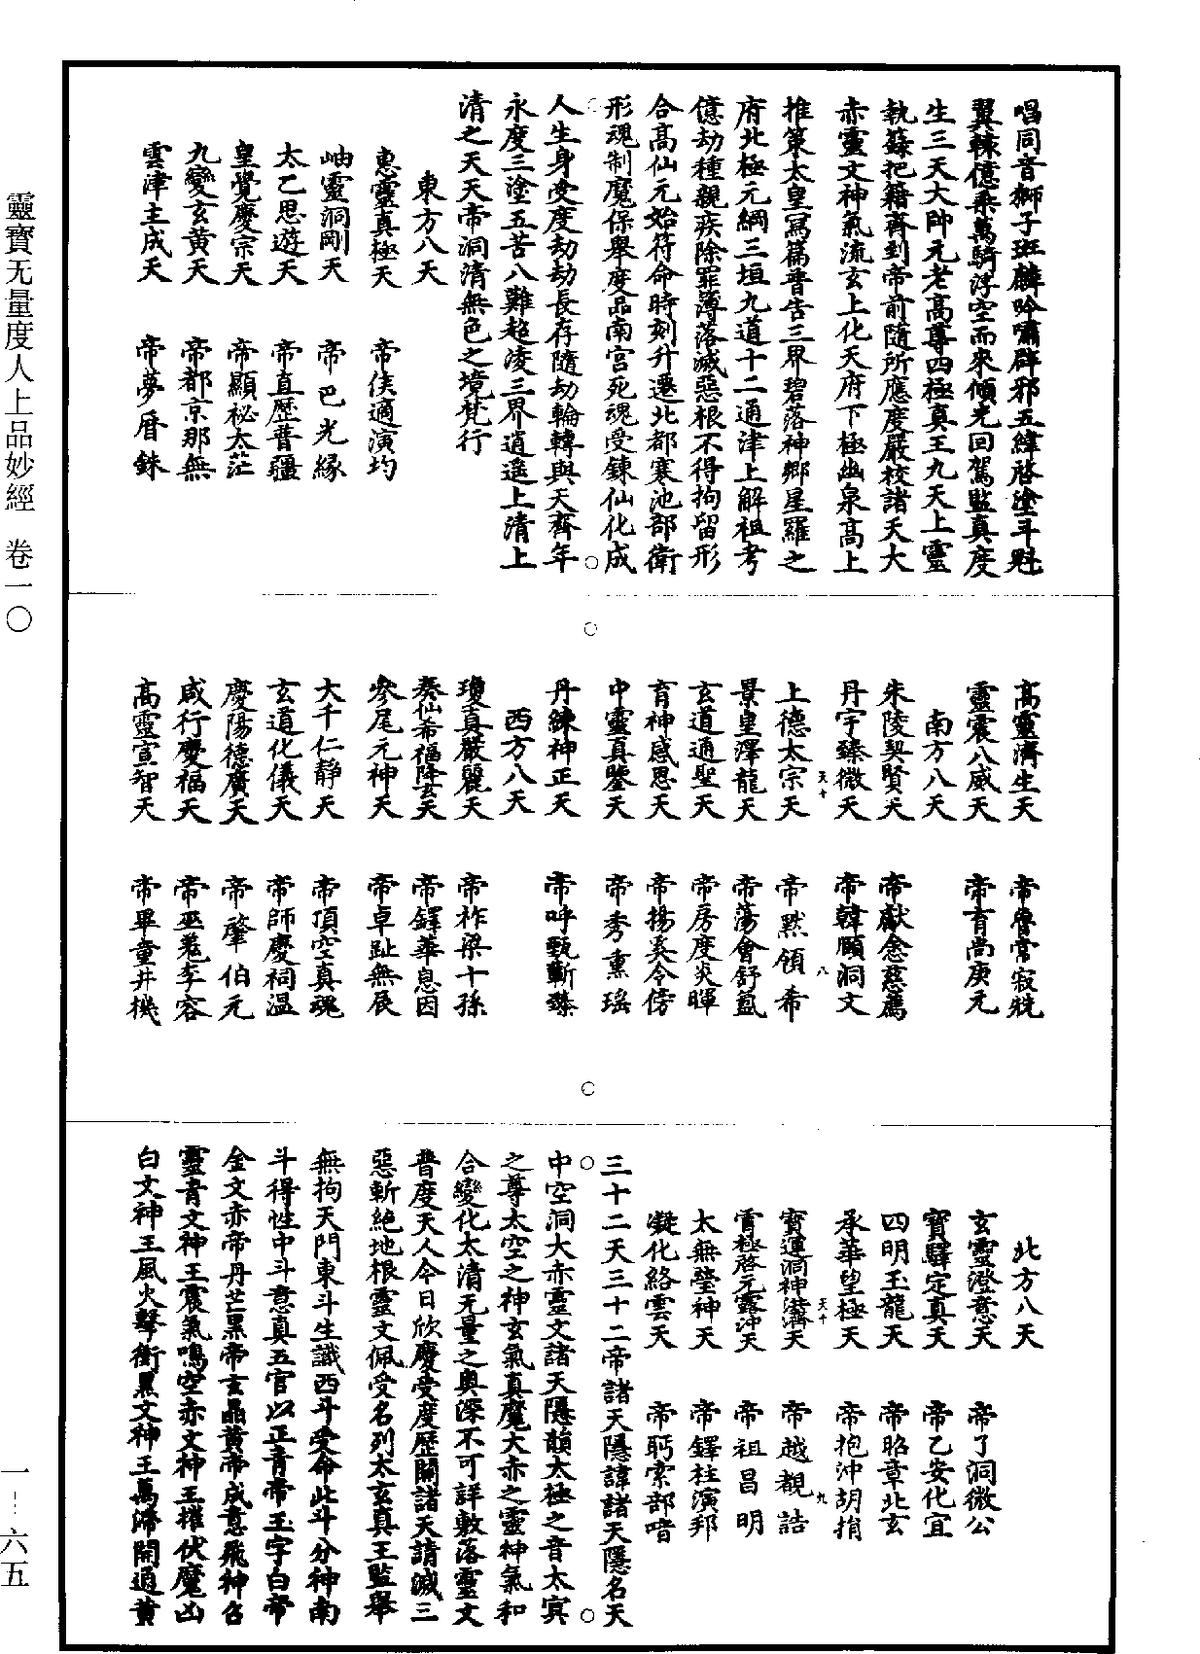 唱同音獅子班麟吟嘯辟邪五緯啓塗斗魁
翼轅億乘萬騎浮空而來傾光回駕監真度
生三天大帥元老高尊四極真王九天上靈
執籙把籍齊到帝前隨所應度嚴校諸天大
赤靈文神氣流玄上化天府下極幽泉高上
推策太皇寫篇普告三界碧落神鄉星羅之
府北極元綱三垣九道十二通津上解祖考
億劫種親疾除罪簿落滅惡根不得拘留形
合高仙元始符命時刻升遷北都寒池部衛
形魂制魔保舉度品南宮死魂受鍊仙化成
人生身受度劫劫長存隨劫輪轉與天齊年
永度三塗五苦八難超凌三界逍遙上清上
清之天天帝洞清無色之境梵行
東方八天
惠靈真極天 帝侯適演圴
岫靈洞剛天 帝巴光緣
太乙思遊天 帝直歷普疆
皇覺慶宗天 帝顯祕太茫
九變玄黃天 帝都京那無
雲津主成天 帝夢厝銖
高靈濟生天 帝魯常寂兟
靈震八威天 帝育尚庚元
南方八天
朱陵契賢天 帝獻念慈薦
丹宇臻微天 帝韓願洞文
上德太宗天 帝黙領希
景皇澤龍天 帝蕩會舒氤
玄道通聖天 帝房度炎暉
育神感恩天 帝揚奚令傍
中靈真鑒天 帝秀熏瑤
丹鍊神正天 帝呼甄斬臻
西方八天
瓊真嚴麗天 帝祚梁十孫
奏仙希福降玄天 帝鐸華息因
參尾元神天 帝卓趾無辰
大千仁靜天 帝頂空真魂
玄道化儀天 帝師慶祠溫
慶陽德廣天 帝肇伯元
咸行慶福天 帝巫菟李容
高靈宣智天 帝畢童井機
北方八天
玄靈澄意天 帝了洞微公
寶驛定真天 帝乙安化宜
四明玉龍天 帝昭章北玄
承華望極天 帝抱沖胡捎
寶運洞神洪濟天 帝越覩詰
霄極啓元露沖天 帝祖昌明
太無瑩神天 帝鐸柱演邦
凝化絡雲天 帝眄索部喑
三十二天三十二帝諸天隱諱諸天隱名天
中空洞大赤靈文諸天隱韻太極之音太冥
之尊太空之神玄氣真魔大赤之靈神氣和
合變化太清无量之奥深不可詳敷落靈文
普度天人今日欣慶受度歷關諸天請滅三
惡斬絶地根靈文佩受名列太玄真王監舉
無拘天門東斗生識西斗受命北斗分神南
斗得性中斗意真五官以正青帝玉字白帝
金文赤帝丹芒黑帝玄晶黃帝成意飛神召
靈青文神王震氣鳴空赤文神王摧伏魔凶
白文神王風火擊衝黑文神王萬滯開通黃
靈寶无量度人上品妙經 卷一〇
一——六五